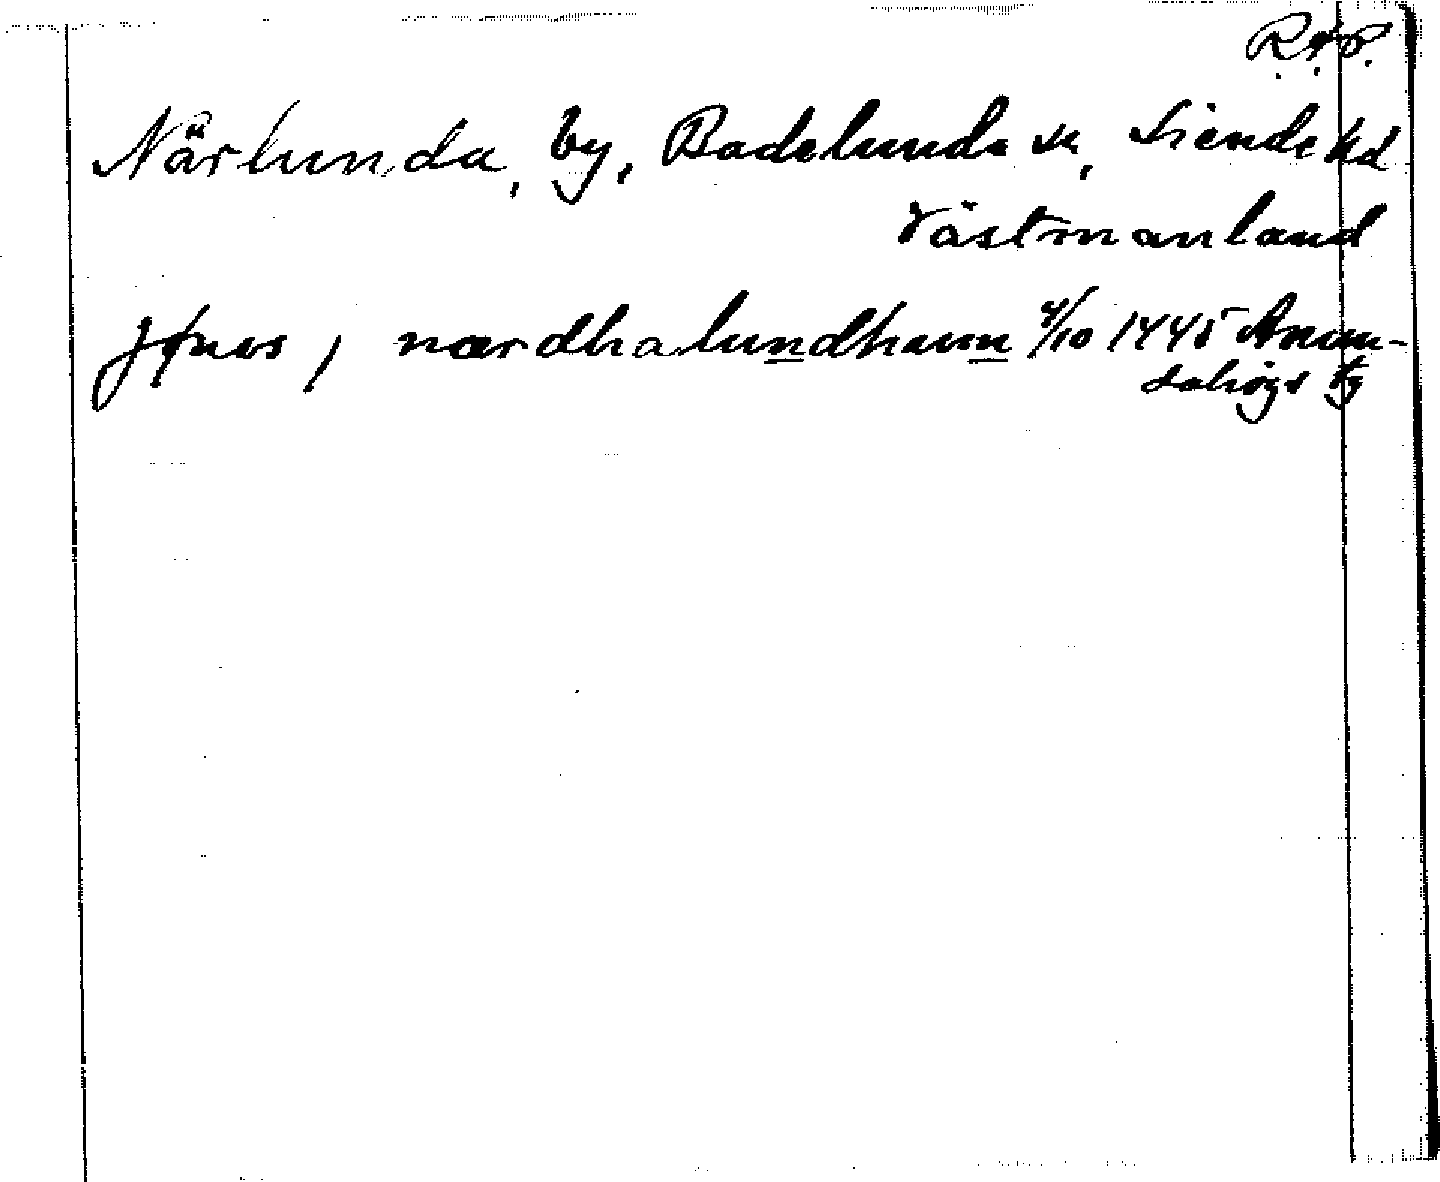 R.A.P.
Närlunda, by, Badelunda sn, Siende hd
Västmanland
Jønes i nærdhalundhaum 4/10 1445 Anun-
dshögs tg